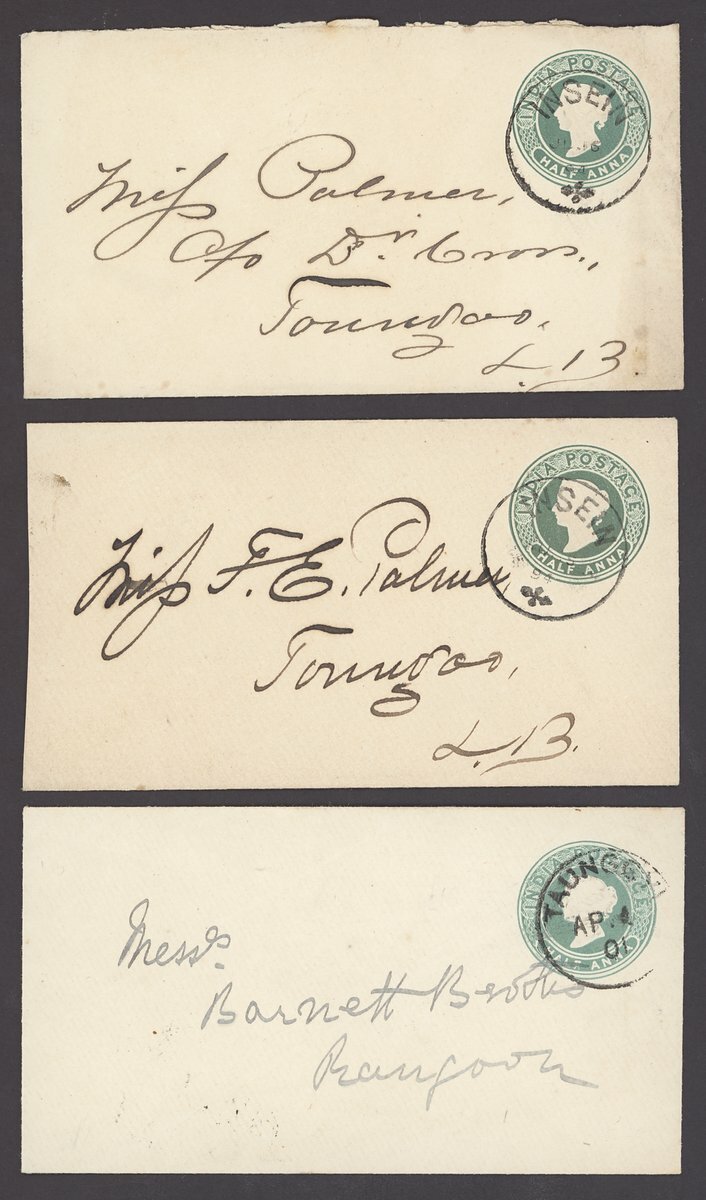 INDIA POSTAGE
HALF ANNA
INSEIN
Miss Palmer,
C/o Dr. Cross.,
Toungoo,
L.B.
INDIA POSTAGE
HALF ANNA
INSEIN
94
Miss F. E. Palmer,
Toungoo,
L.B.
INDIA POSTAGE
HALF ANNA
TAUNGGYI
AP. 4
01
Messrs.
Barnett Brothers
Rangoon